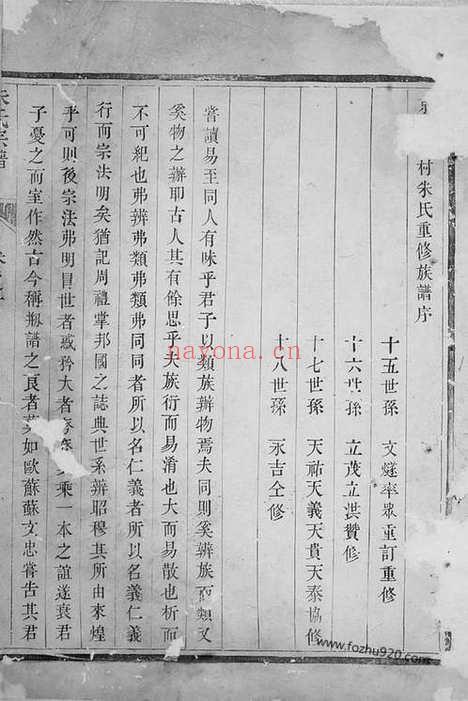 村朱氏重修族譜序
十五世孫 文燧率眾重訂重修
十六世孫 立茂立洪贊修
十七世孫 天祐天義天貴天泰協修
十八世孫 永吉仝修
嘗讀易至同人有味乎君子以類族辦物焉夫同則奚辨族而類又
奚物之辦耶古人其有餘思乎夫族衍而易淆也大而易散也析而
不可紀也弗辨弗類弗同同者所以名仁義者所以名義仁義
行而宗法明矣猶記周禮掌邦國之誌典世系辨昭穆其所由來煌
乎可則後宗法弗明冒世者或矜大者 乘一本之誼遂衰君
子憂之而室作然古今稱剏譜之良者莫如歐蘇蘇文忠嘗古其君
朱氏宗譜
nayona.cn
www.fozhu920.com